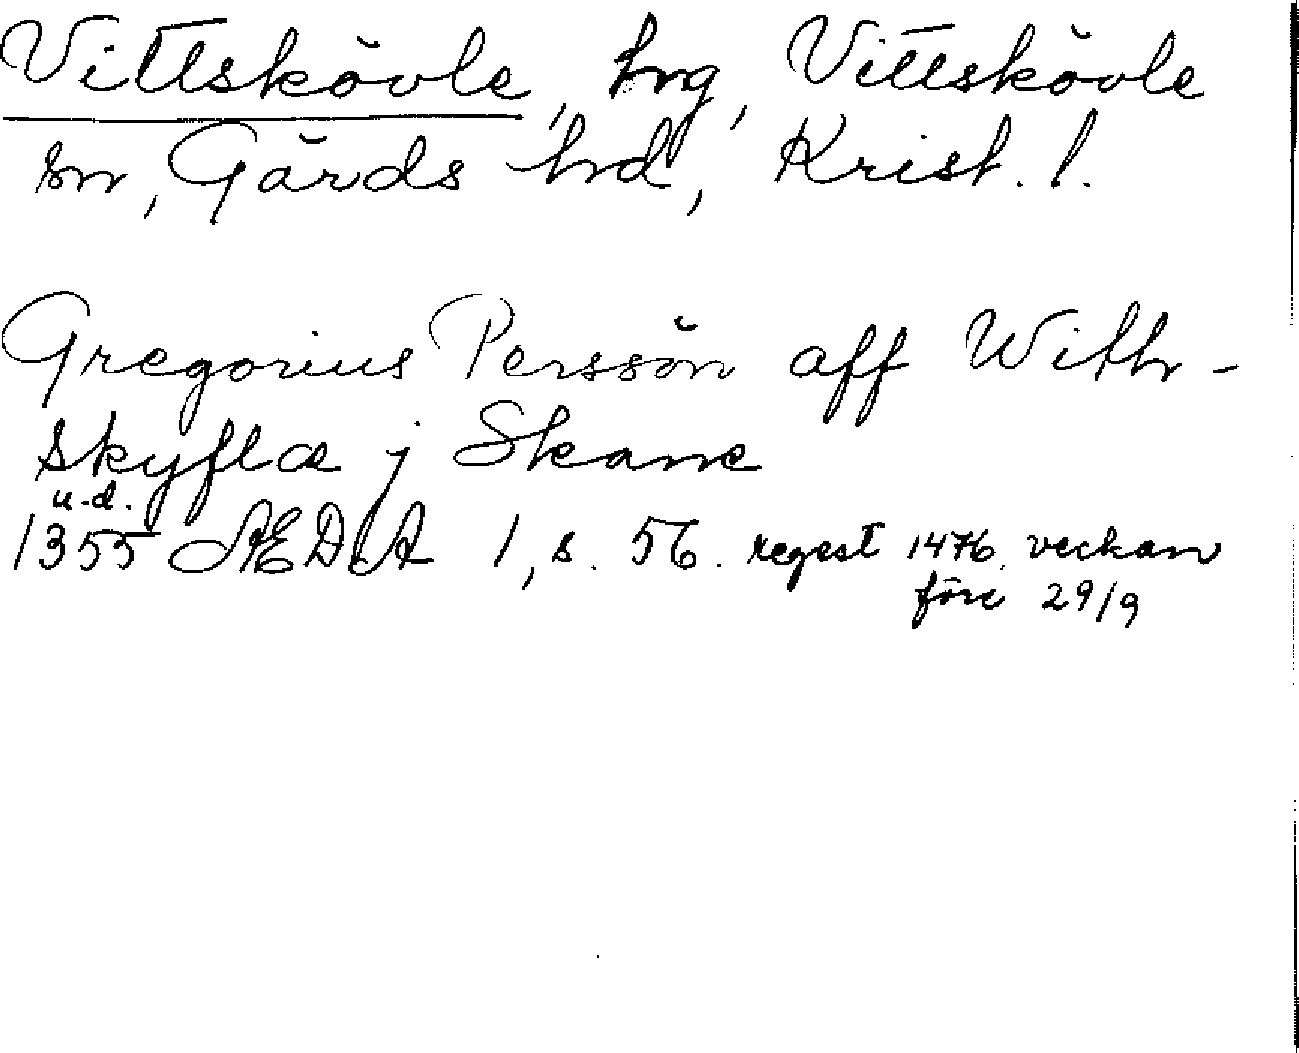 Vittskövle, hrg, Vittskövle
sn, Gärds hrd, Krist. l.
Gregorius Perssön aff With-
skyflæ j Skane
u.d.
1355 ÆDA 1, s. 56. regest 1476. veckan
före 29/9